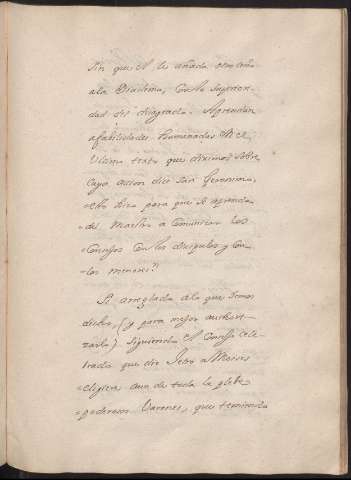 Sin que el le añada
ala Diadema, con la Superiori-
dad
afabilidades humanadas
Ultimo trato que diximos, sobre
cuya accion dice San Geronimo,
esto hizo para que se aprenda
del Maestro a Comunicar los
Consejos con los discipulos y con
los menores.
Si arreglado a lo que temos
dicho, (y para mejor authori-
zarlo) siguiendo el Consejo cele-
brado que dio Jetro a Moises
eligiera aun de toda la plebe
poderosos Varones, que teniendo